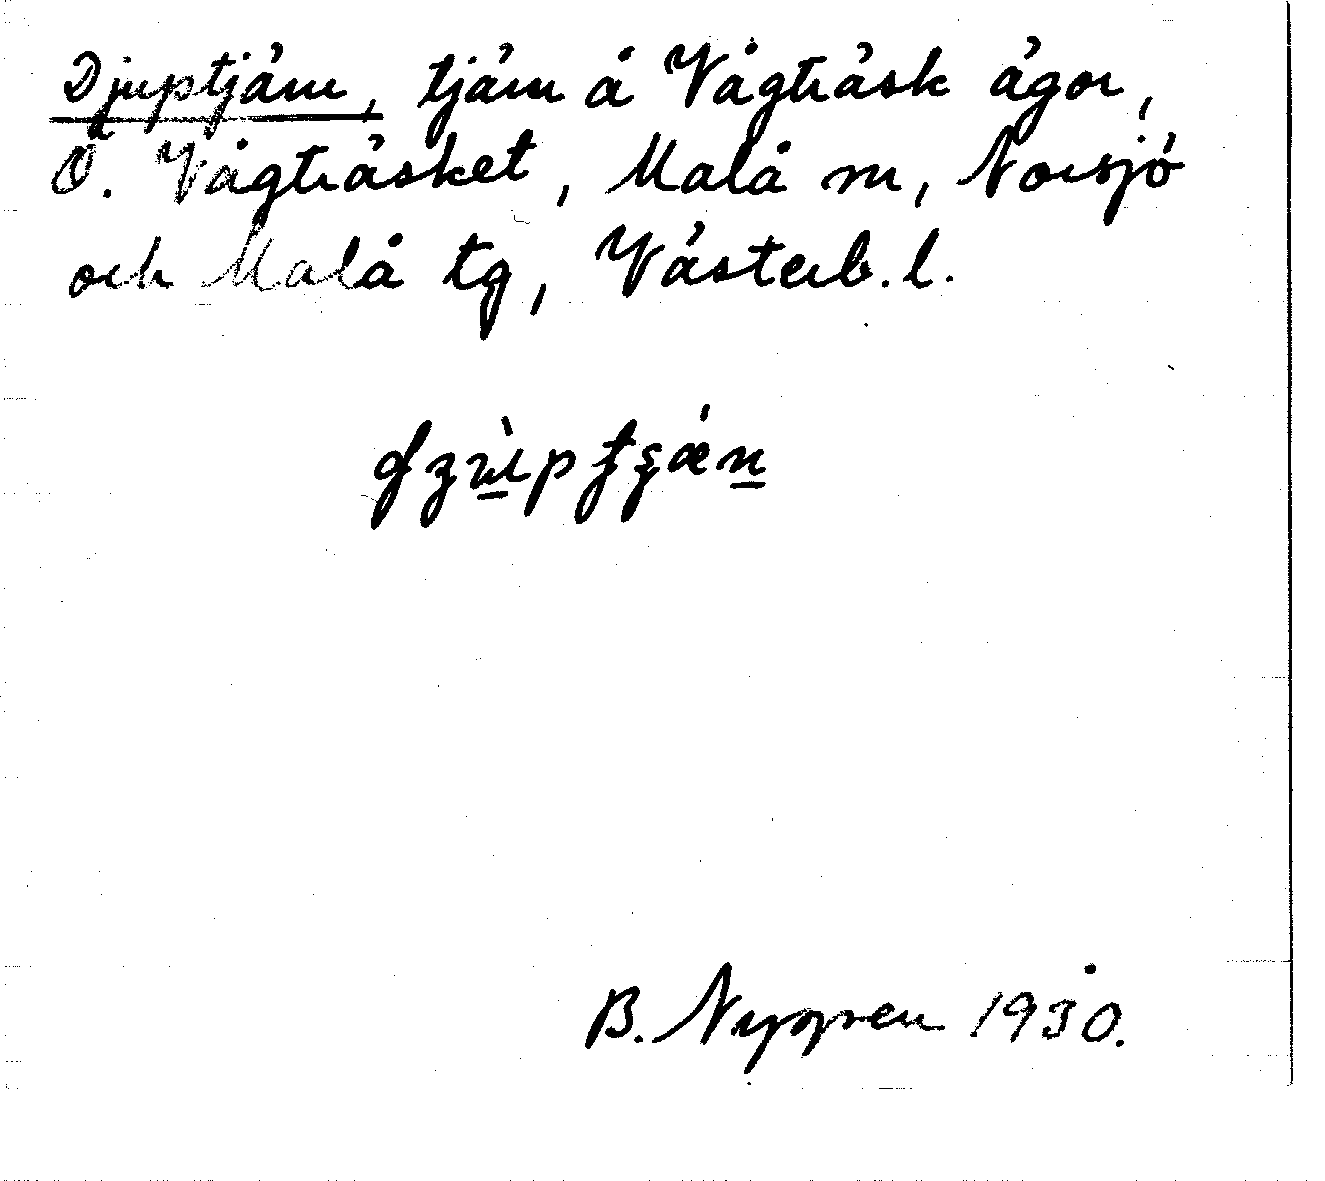 Djuptjärn, tjärn å Vågträsk ägor,
Ö. Vågträsket, Malå sn, Norsjö
och Malå tg, Västerb. l.
B. Nygren 1930.